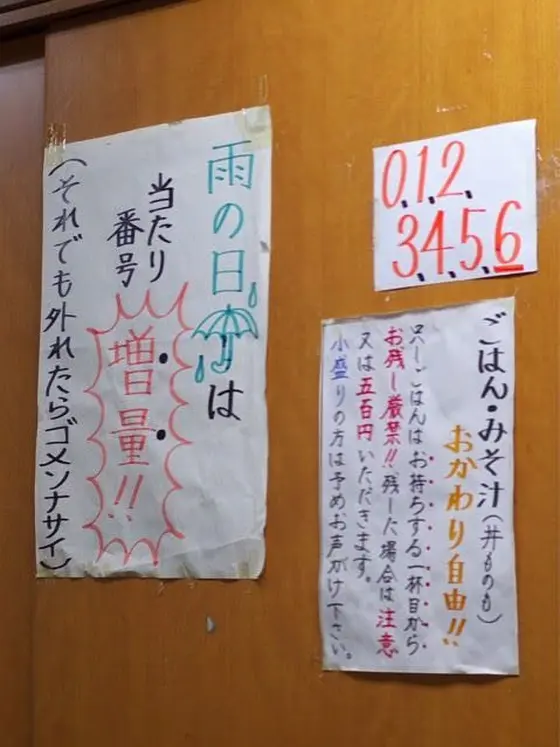 0,1,2,
3,4,5,6
ごはん・みそ汁(丼ものも)
おかわり自由!!
只しごはんはお持ちする一杯目から
お残し厳禁!!残した場合は注意
又は五百円いただきます。
小盛りの方は予めお声がけ下さい。
雨の日は
当たり
番号
増量!!
(それでも外れたらゴメンナサイ)